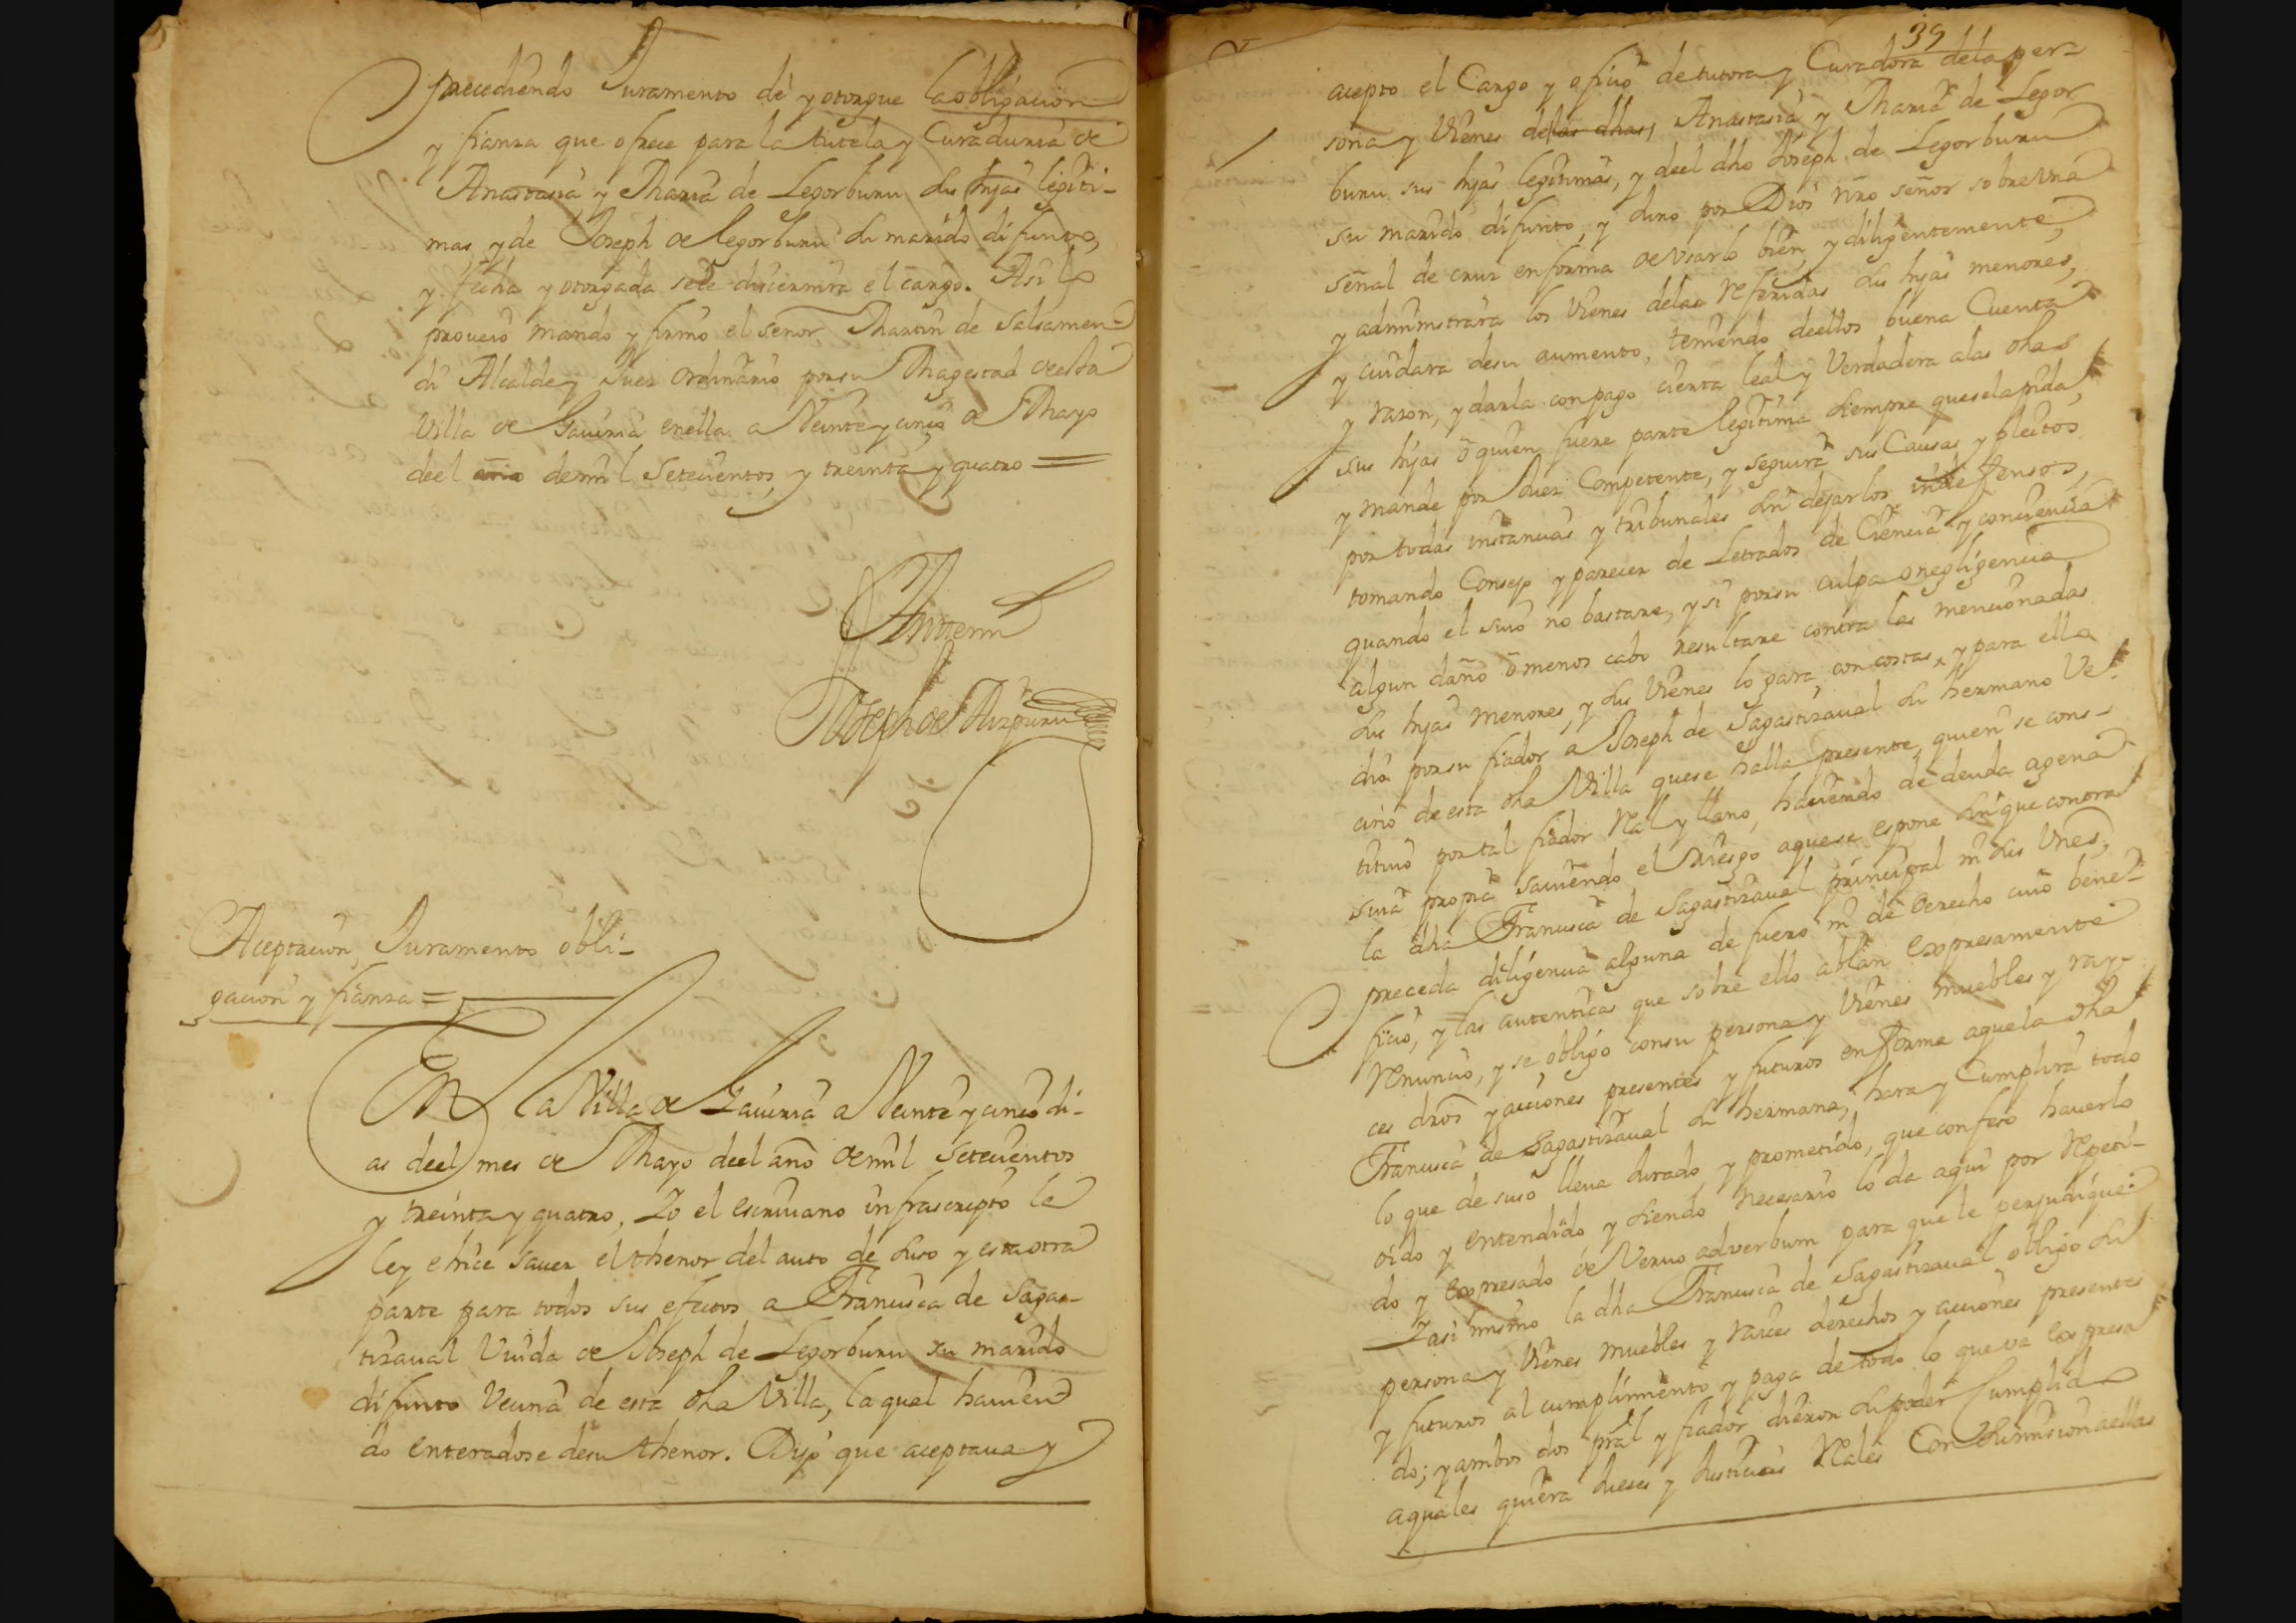 precediendo Juramento dè y otorgue la obligacion
y fianza que ofrece para la tutela y Curaduria de
Anastasia, y Maria de Legorburu sus hijas legiti-
mas, y de Joseph de Legorburu su marido difunto,
y fecha y otorgada sele discernira el cargo. Asi lo
proveio mando y firmo el señor Martin de Salsamen-
di Alcalde y Juez ordinario por su Magestad de esta
Villa de Gaviria en ella a Veinte y cinco de Mayo
de el año de mil Setecientos, y treinta y quatro =
Antemi
Joseph de Aizpuru
Aceptacion, Juramento obli-
gacion y fianza =
En la Villa de Gaviria a Veinte y cinco di-
as de el mes de Mayo de el año de mil Setecientos
y treinta y quatro, Yo el escrivano infrascripto lei
ley e hice saver el thenor del auto de suso y esta otra
parte para todos sus efectos a Francisca de Sagas-
tizaval Viuda de Joseph de Legorburu su marido
difunto Vecina de esta dha Villa, la qual havien
do enteradose de su thenor. Dijo que aceptava y
39
acepto el Cargo y oficio de tutora y Curadora de la per-
sona y Vienes de las dhas, Anastasia y Maria de Legor
buru sus hijas legitimas, y de el dho Joseph de Legorburu
su marido difunto, y juro por Dios nro señor sobre una
señal de cruz en forma de usarlo bien, y diligentemente,
y administrara los Vienes de las referidas sus hijas menores,
y cuidara de su aumento, teniendo de ellos buena Cuenta
y razon, y darla con pago cierta leal y Verdadera a las dhas
sus hijas ò quien fuere parte legitima siempre que se la pida,
y mande por Juez Competente, y seguira sus Causas y pleitos
por todas instancias y tribunales sin dejarlos indefensos,
tomando Consejo y parecer de Letrados de Ciencia y conciencia
quando el suio no bastare, y si por su culpa o negligencia
algun daño ò menos cabo resultare contra las mencionadas
sus hijas menores, y sus Vienes lo pagara, con costas, y para ello
dio por su fiador a Joseph de Sagastizaval su hermano Ve-
cino de esta dha Villa que se halla presente, quien se cons-
tituio por tal fiador Real y llano, haviendo de deuda agena
suia propia saviendo el Riesgo a que se espone sin que contra
la dha Francisca de Sagastizaval principal ni sus Vienes,
preceda diligencia alguna de fuero ni de derecho cuio bene-
ficio, y las autenticas que sobre ello ablan expresamente
Renuncio, y se obligo con su persona y Vienes muebles y ray-
ces dros y acciones presentes y futuros en forma a que la dha
Francisca de Sagastizaval su hermana, hara y Cumplira todo
lo que de suso lleva jurado, y prometido, que confeso haverlo
oido y entendido y siendo necesario lo da aqui por Repeti-
do y expresado de Vervo adverbum para que le perjudique.
Y asi mismo la dha Francisca de Sagastizaval obligo su
persona y Vienes muebles y raices derechos y acciones presentes
y futuros al cumplimiento y paga de todo lo que va expresa
do; y ambos dos pral y fiador dieron su poder Cumplido
a quales quiera Jueses y Justicias Reales Con Sumision a ellas